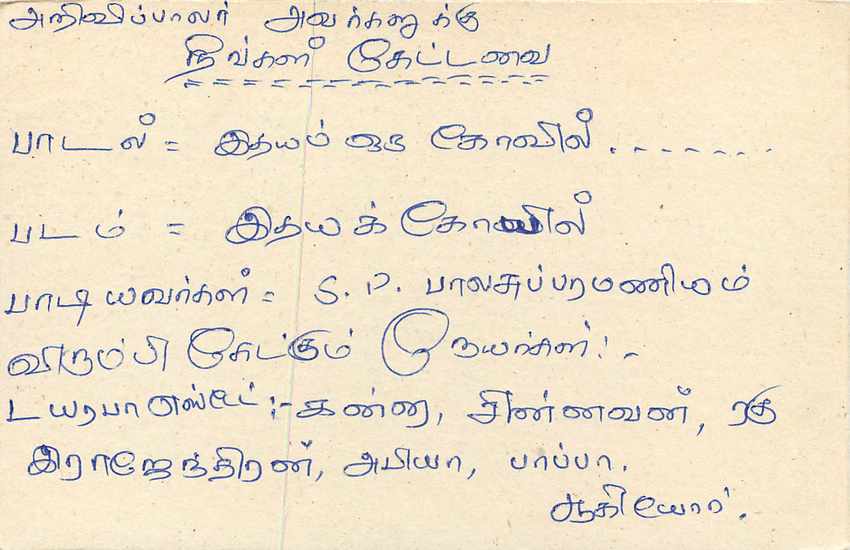 அறிவிப்பாளர் அவர்களுக்கு
நீங்கள் கேட்டவை
பாடல் = இதயம் ஒரு கோவில் . - - - - - -
படம் = இதயக் கோயில்
பாடியவர்கள் = S. P. பாலசுப்பரமணியம்
விரும்பி கேட்கும் நேயர்கள் : -
டயரபா எஸ்டேட் :- கண்ணா, சின்னவன், ரகு
இராஜேந்திரன், அபியா, பாப்பா.
ஆகியோர்.